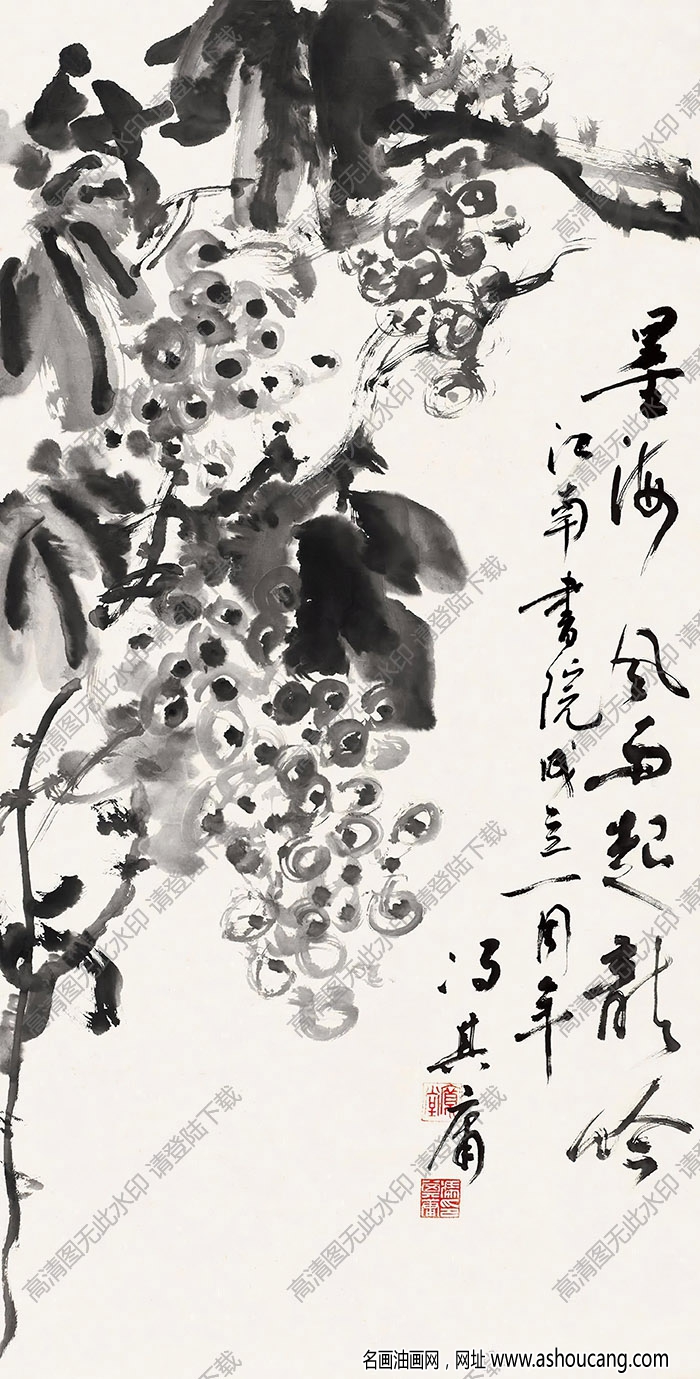 墨海风雨起龍吟
江南書院成立一周年
冯其庸
高清图无此水印 请登陆下载
名画油画网，网址 www.ashoucang.com